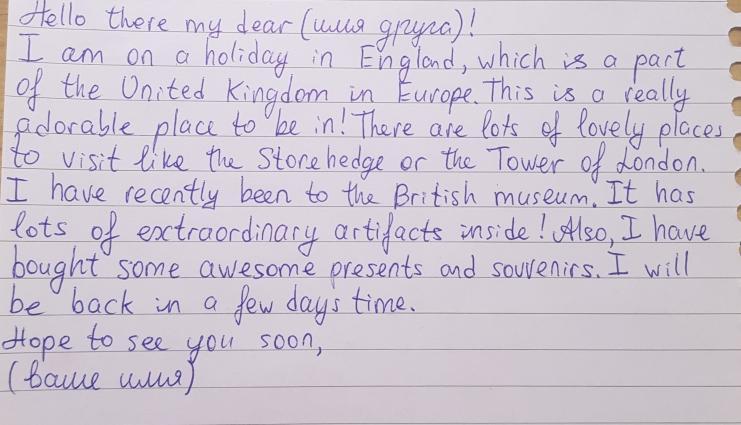 Hello there my dear (имя друга)!
I am on a holiday in England, which is a part
of the United Kingdom in Europe. This is a really
adorable place to be in! There are lots of lovely places
to visit like the Stonehedge or the Tower of London.
I have recently been to the British museum. It has
lots of extraordinary artifacts inside! Also, I have
bought some awesome presents and souvenirs. I will
be back in a few days time.
Hope to see you soon,
(ваше имя)